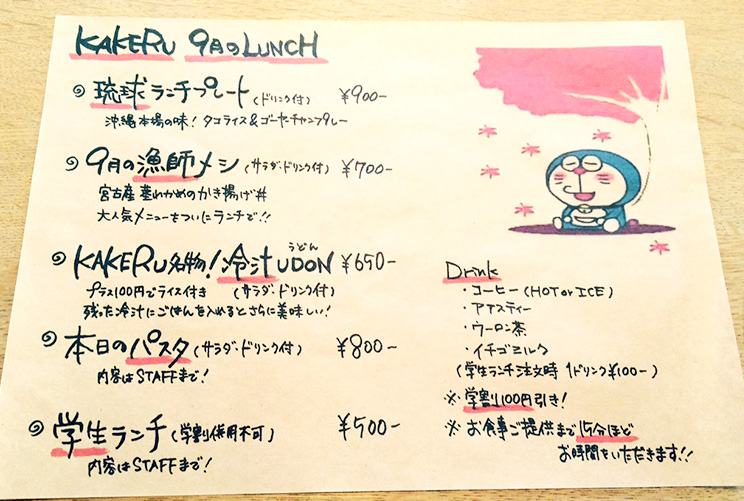 KAKERU 9月のLUNCH
琉球ランチプレート(ドリンク付) ¥900-
沖縄本場の味!タコライス&ゴーヤーチャンプルー
9月の漁師メシ(サラダ・ドリンク付) ¥700-
宮古産 茎わかめのかき揚げ丼
大人気メニューをついにランチで!!
KAKERU名物!冷汁UDON ¥650-
うどん
プラス100円でライス付き (サラダ・ドリンク付)
残った冷汁にごはんを入れるとさらに美味しい!
本日のパスタ(サラダ・ドリンク付) ¥800-
内容はSTAFFまで!
学生ランチ(学割併用不可) ¥500-
内容はSTAFFまで!
Drink
・コーヒー(HOT or ICE)
・アイスティー
・ウーロン茶
・イチゴミルク
(学生ランチ注文時 1ドリンク¥100-)
※学割100円引き!
※お食事ご提供まで15分ほど
お時間をいただきます!!